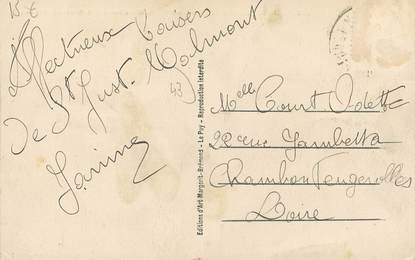 15 €
Affectueux baisers
de St Just. Malmont
Janine
43
Editions d'Art Margerit-Brémond - Le Puy - Reproduction interdite
Melle Court Odette
22 rue Gambetta
Chambon Feugerolles
Loire